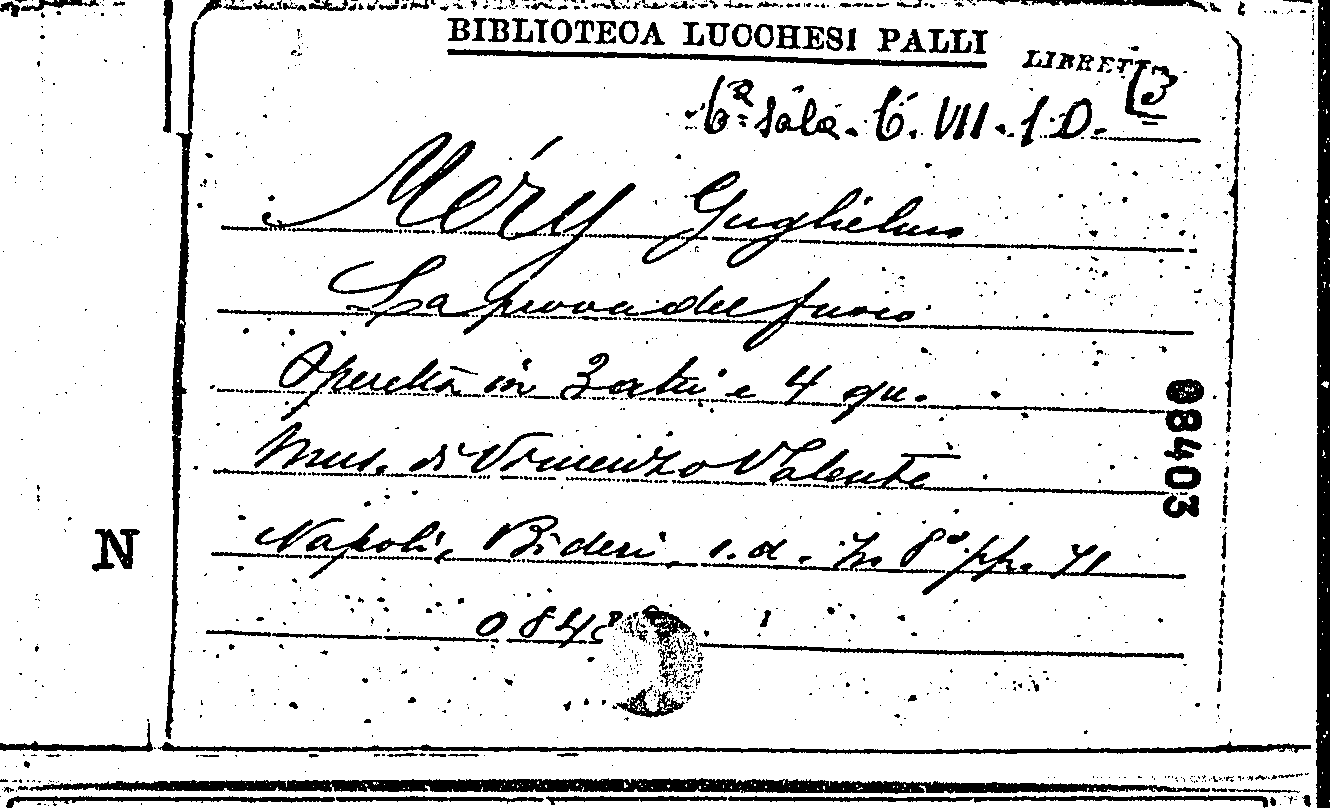 BIBLIOTECA LUCCHESI PALLI
LIBRETTI
6ª Sala. 6. VII. 1 D. 13
Méry Guglielmo
La prova del fuoco
Operetta in 3 atti e 4 qu.
Mus. di Vincenzo Valente
Napoli, Bideri, s.d. In 8° pp. 71
08403
N